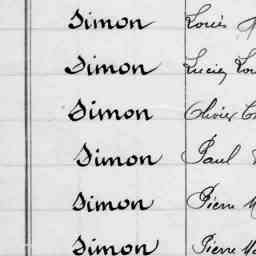 Simon Louis
Simon Lucien Lou
Simon Olivier C
Simon Paul
Simon Pierre M
Simon Pierre Ma